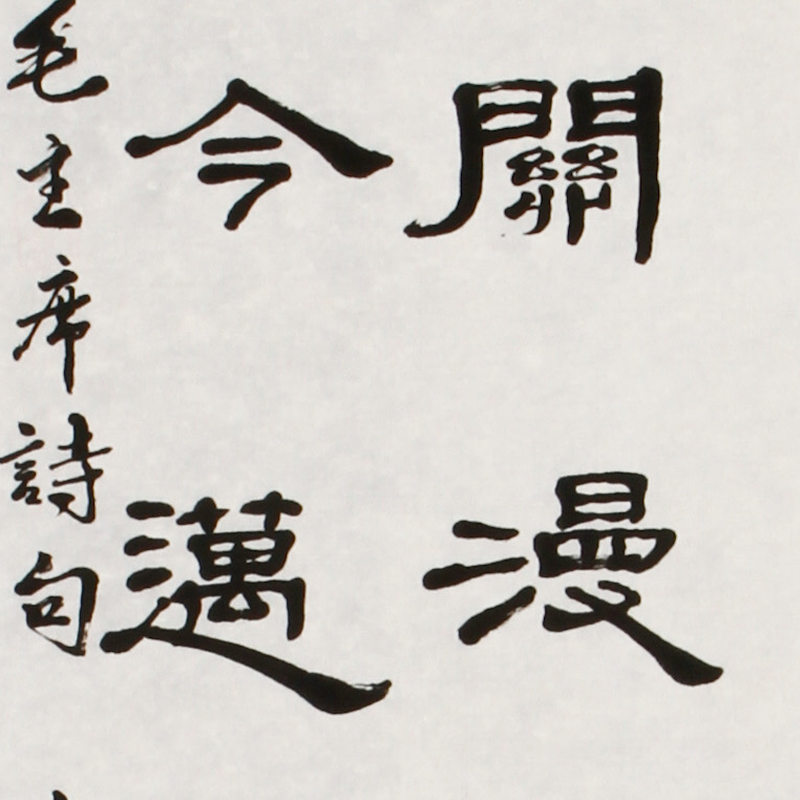 關漫
今邁
毛主席詩句